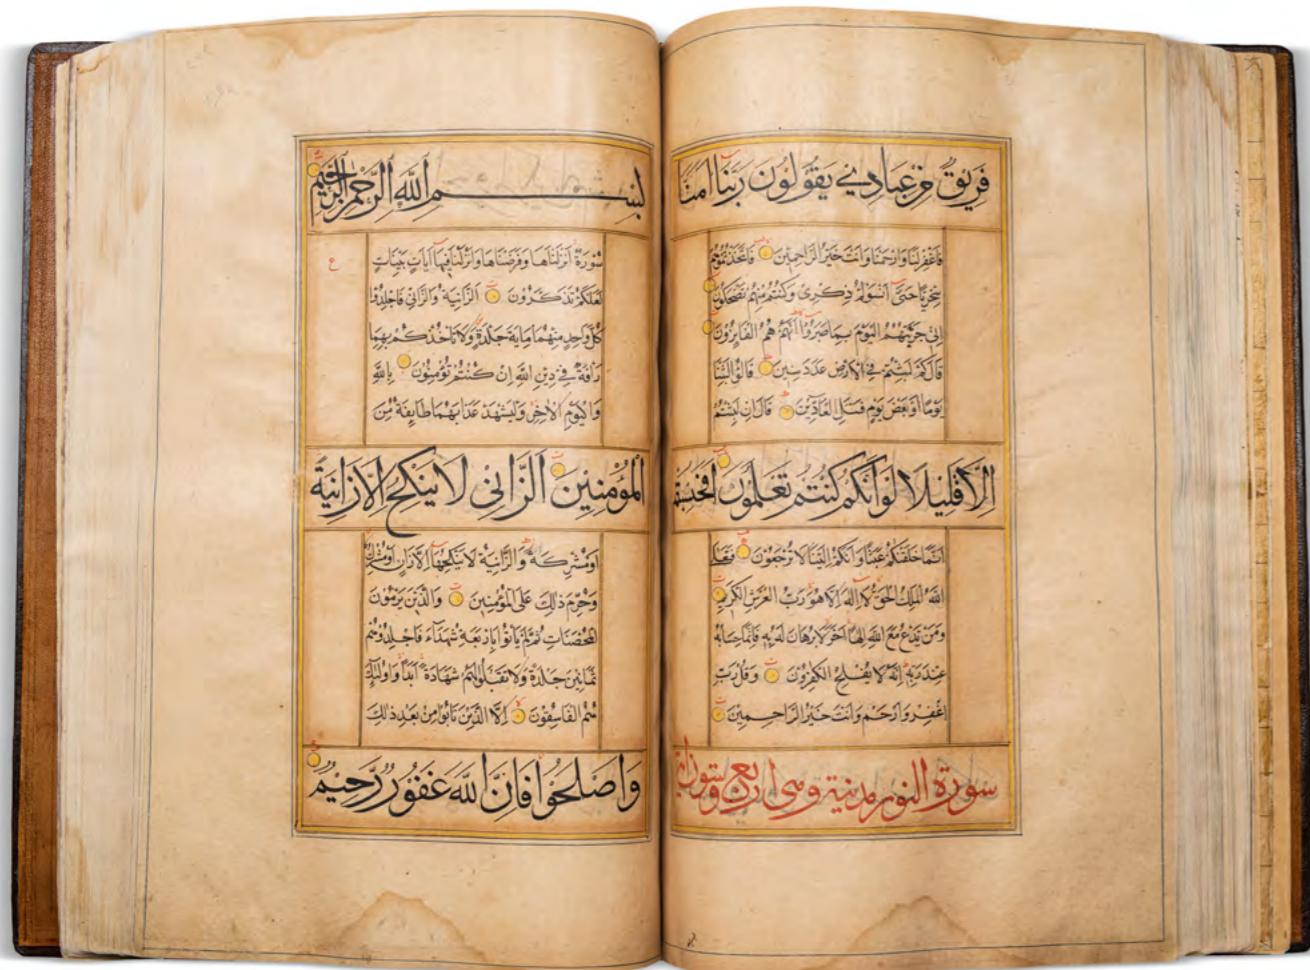 فَرِيقٌ مِنْ عِبَادِي يَقُولُونَ رَبَّنَا آمَنَّا
فَاغْفِرْ لَنَا وَارْحَمْنَا وَأَنْتَ خَيْرُ الرَّاحِمِينَ فَاتَّخَذْتُمُوهُمْ
سِخْرِيًّا حَتَّى أَنْسَوْكُمْ ذِكْرِي وَكُنْتُمْ مِنْهُمْ تَضْحَكُونَ
إِنِّي جَزَيْتُهُمُ الْيَوْمَ بِمَا صَبَرُوا أَنَّهُمْ هُمُ الْفَايِزُونَ
قَالَ كَمْ لَبِثْتُمْ فِي الْأَرْضِ عَدَدَ سِنِينَ قَالُوا لَبِثْنَا
يَوْمًا أَوْ بَعْضَ يَوْمٍ فَسْئَلِ الْعَادِّينَ قَالَ إِنْ لَبِثْتُمْ
إِلَّا قَلِيلًا لَوْ أَنَّكُمْ كُنْتُمْ تَعْلَمُونَ أَفَحَسِبْتُمْ
أَنَّمَا خَلَقْنَاكُمْ عَبَثًا وَأَنَّكُمْ إِلَيْنَا لَا تُرْجَعُونَ فَتَعَالَى
اللَّهُ الْمَلِكُ الْحَقُّ لَا إِلَهَ إِلَّا هُوَ رَبُّ الْعَرْشِ الْكَرِيمِ
وَمَنْ يَدْعُ مَعَ اللَّهِ إِلَهًا آخَرَ لَا بُرْهَانَ لَهُ بِهِ فَإِنَّمَا حِسَابُهُ
عِنْدَ رَبِّهِ إِنَّهُ لَا يُفْلِحُ الْكَفِرُونَ وَقُلْ رَبِّ
اغْفِرْ وَارْحَمْ وَأَنْتَ خَيْرُ الرَّاحِمِينَ
سورة النور مدنية وهي اربع وستون آية
بِسْمِ اللَّهِ الرَّحْمَنِ الرَّحِيمِ
سُورَةٌ أَنْزَلْنَاهَا وَفَرَضْنَاهَا وَأَنْزَلْنَا فِيهَا آيَاتٍ بَيِّنَاتٍ
لَعَلَّكُمْ تَذَكَّرُونَ الزَّانِيَةُ وَالزَّانِي فَاجْلِدُوا
كُلَّ وَاحِدٍ مِنْهُمَا مِايَةَ جَلْدَةٍ وَلَا تَأْخُذْكُمْ بِهِمَا
رَأْفَةٌ فِي دِينِ اللَّهِ إِنْ كُنْتُمْ تُؤْمِنُونَ بِاللَّهِ
وَالْيَوْمِ الْآخِرِ وَلْيَشْهَدْ عَذَابَهُمَا طَايِفَةٌ مِنَ
الْمُؤْمِنِينَ الزَّانِي لَا يَنْكِحُ إِلَّا زَانِيَةً
أَوْ مُشْرِكَةً وَالزَّانِيَةُ لَا يَنْكِحُهَا إِلَّا زَانٍ أَوْ مُشْرِكٌ
وَحُرِّمَ ذَلِكَ عَلَى الْمُؤْمِنِينَ وَالَّذِينَ يَرْمُونَ
الْمُحْصَنَاتِ ثُمَّ لَمْ يَأْتُوا بِأَرْبَعَةِ شُهَدَاءَ فَاجْلِدُوهُمْ
ثَمَانِينَ جَلْدَةً وَلَا تَقْبَلُوا لَهُمْ شَهَادَةً أَبَدًا وَأُولَئِكَ
هُمُ الْفَاسِقُونَ إِلَّا الَّذِينَ تَابُوا مِنْ بَعْدِ ذَلِكَ
وَأَصْلَحُوا فَإِنَّ اللَّهَ غَفُورٌ رَحِيمٌ
ع